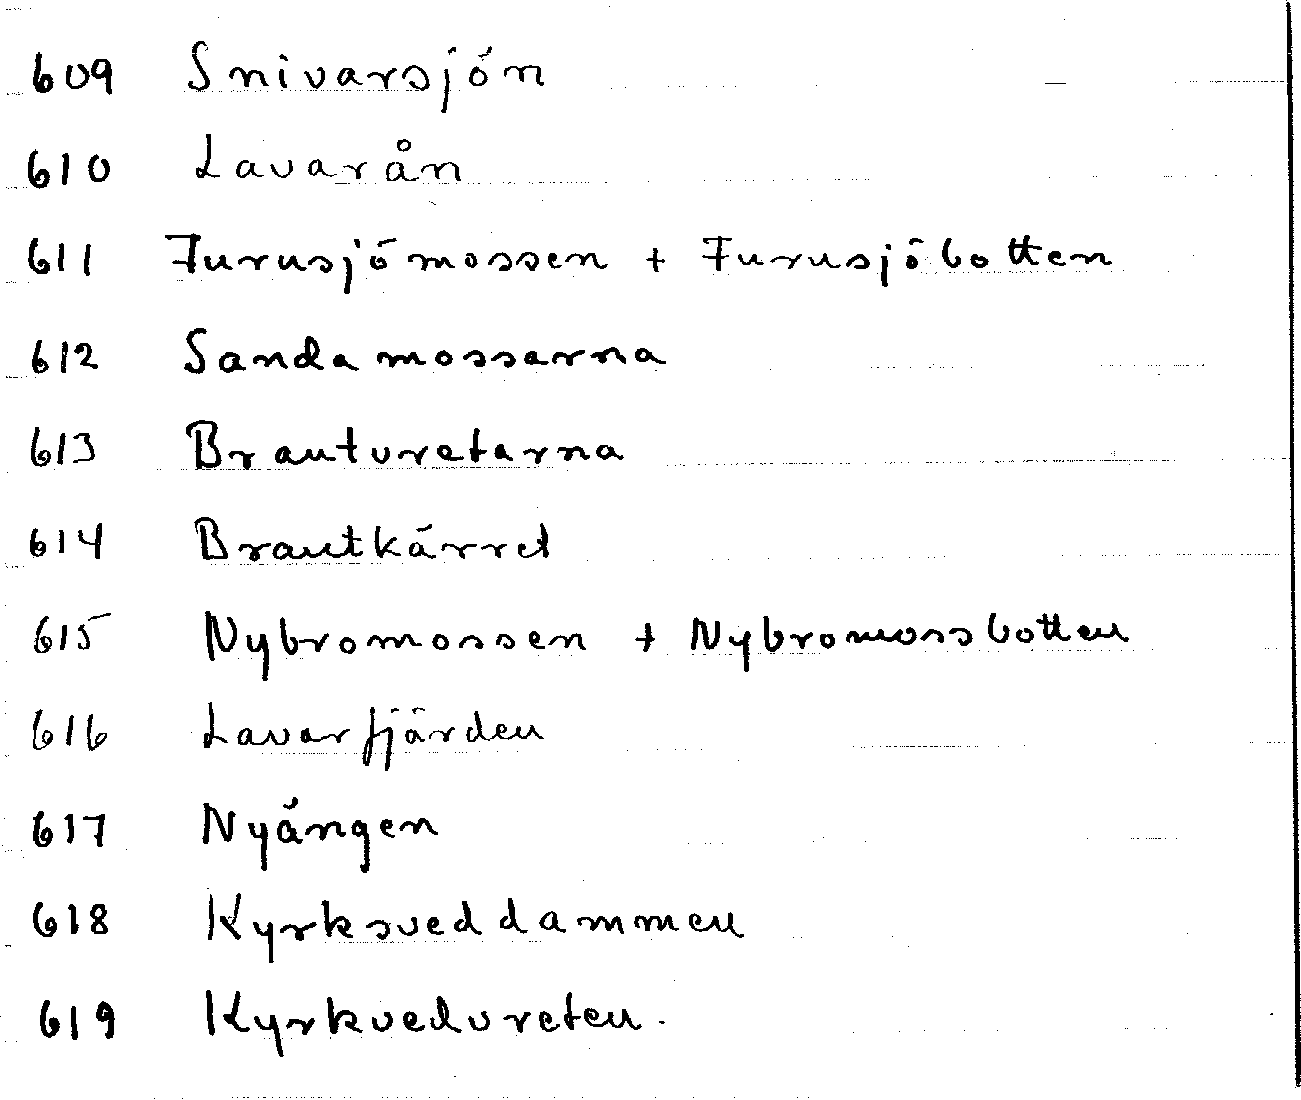 609 Snivarsjön
610 Lavarån
611 Furusjömossen + Furusjöbotten
612 Sandamossarna
613 Brautvretarna
614 Brautkärret
615 Nybromossen + Nybromossbotten
616 Lavarfjärden
617 Nyängen
618 Kyrksveddammen
619 Kyrkvedvreten.